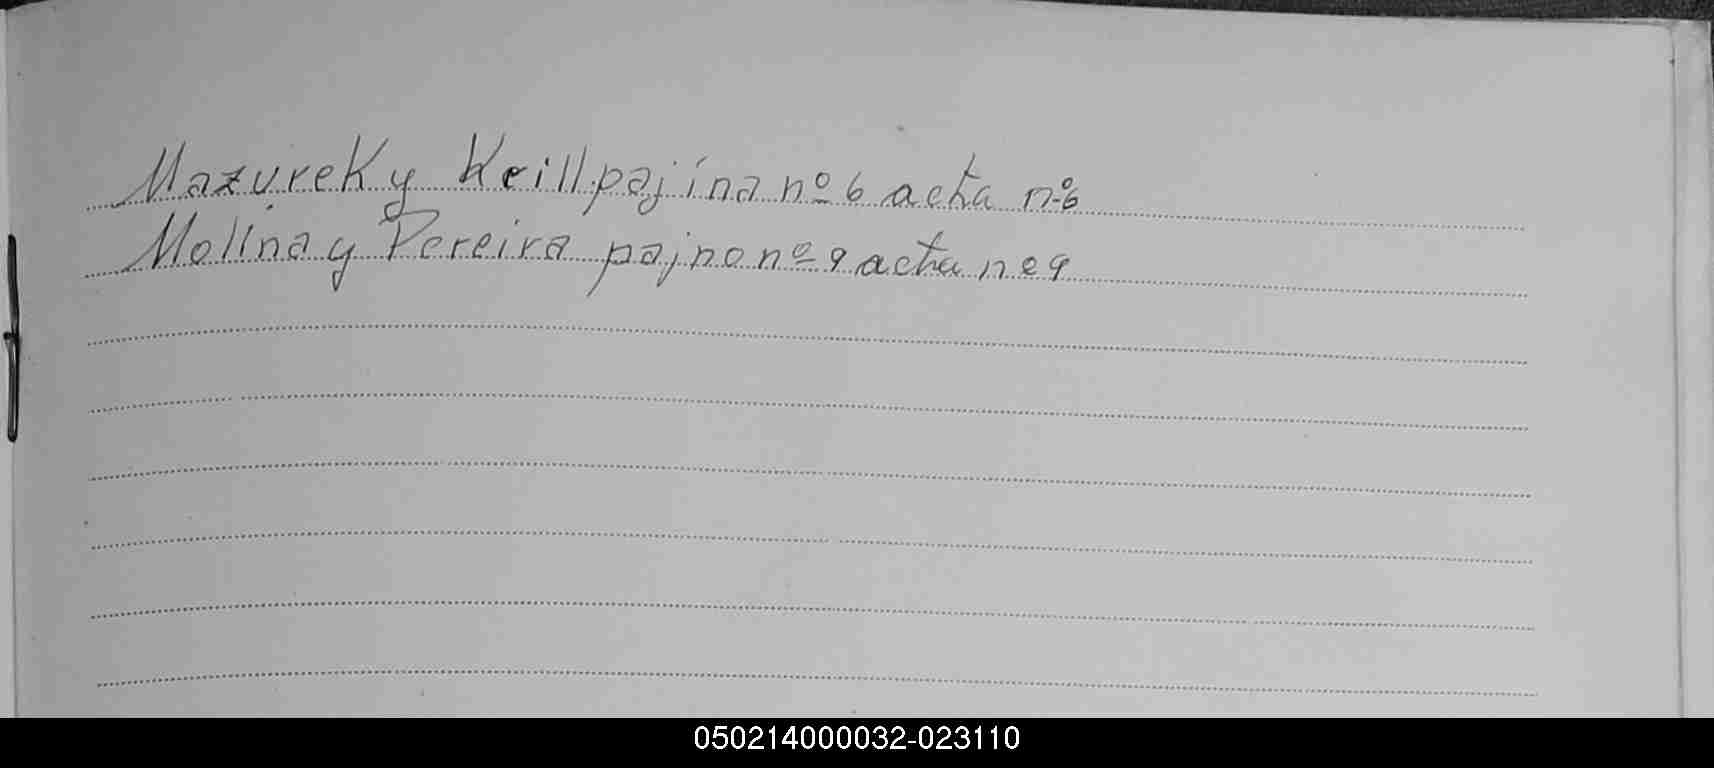 Mazurek y Keill pajina nº 6 acta nº 6
Molina y Pereira pajno nº 9 acta nº 9
050214000032-023110